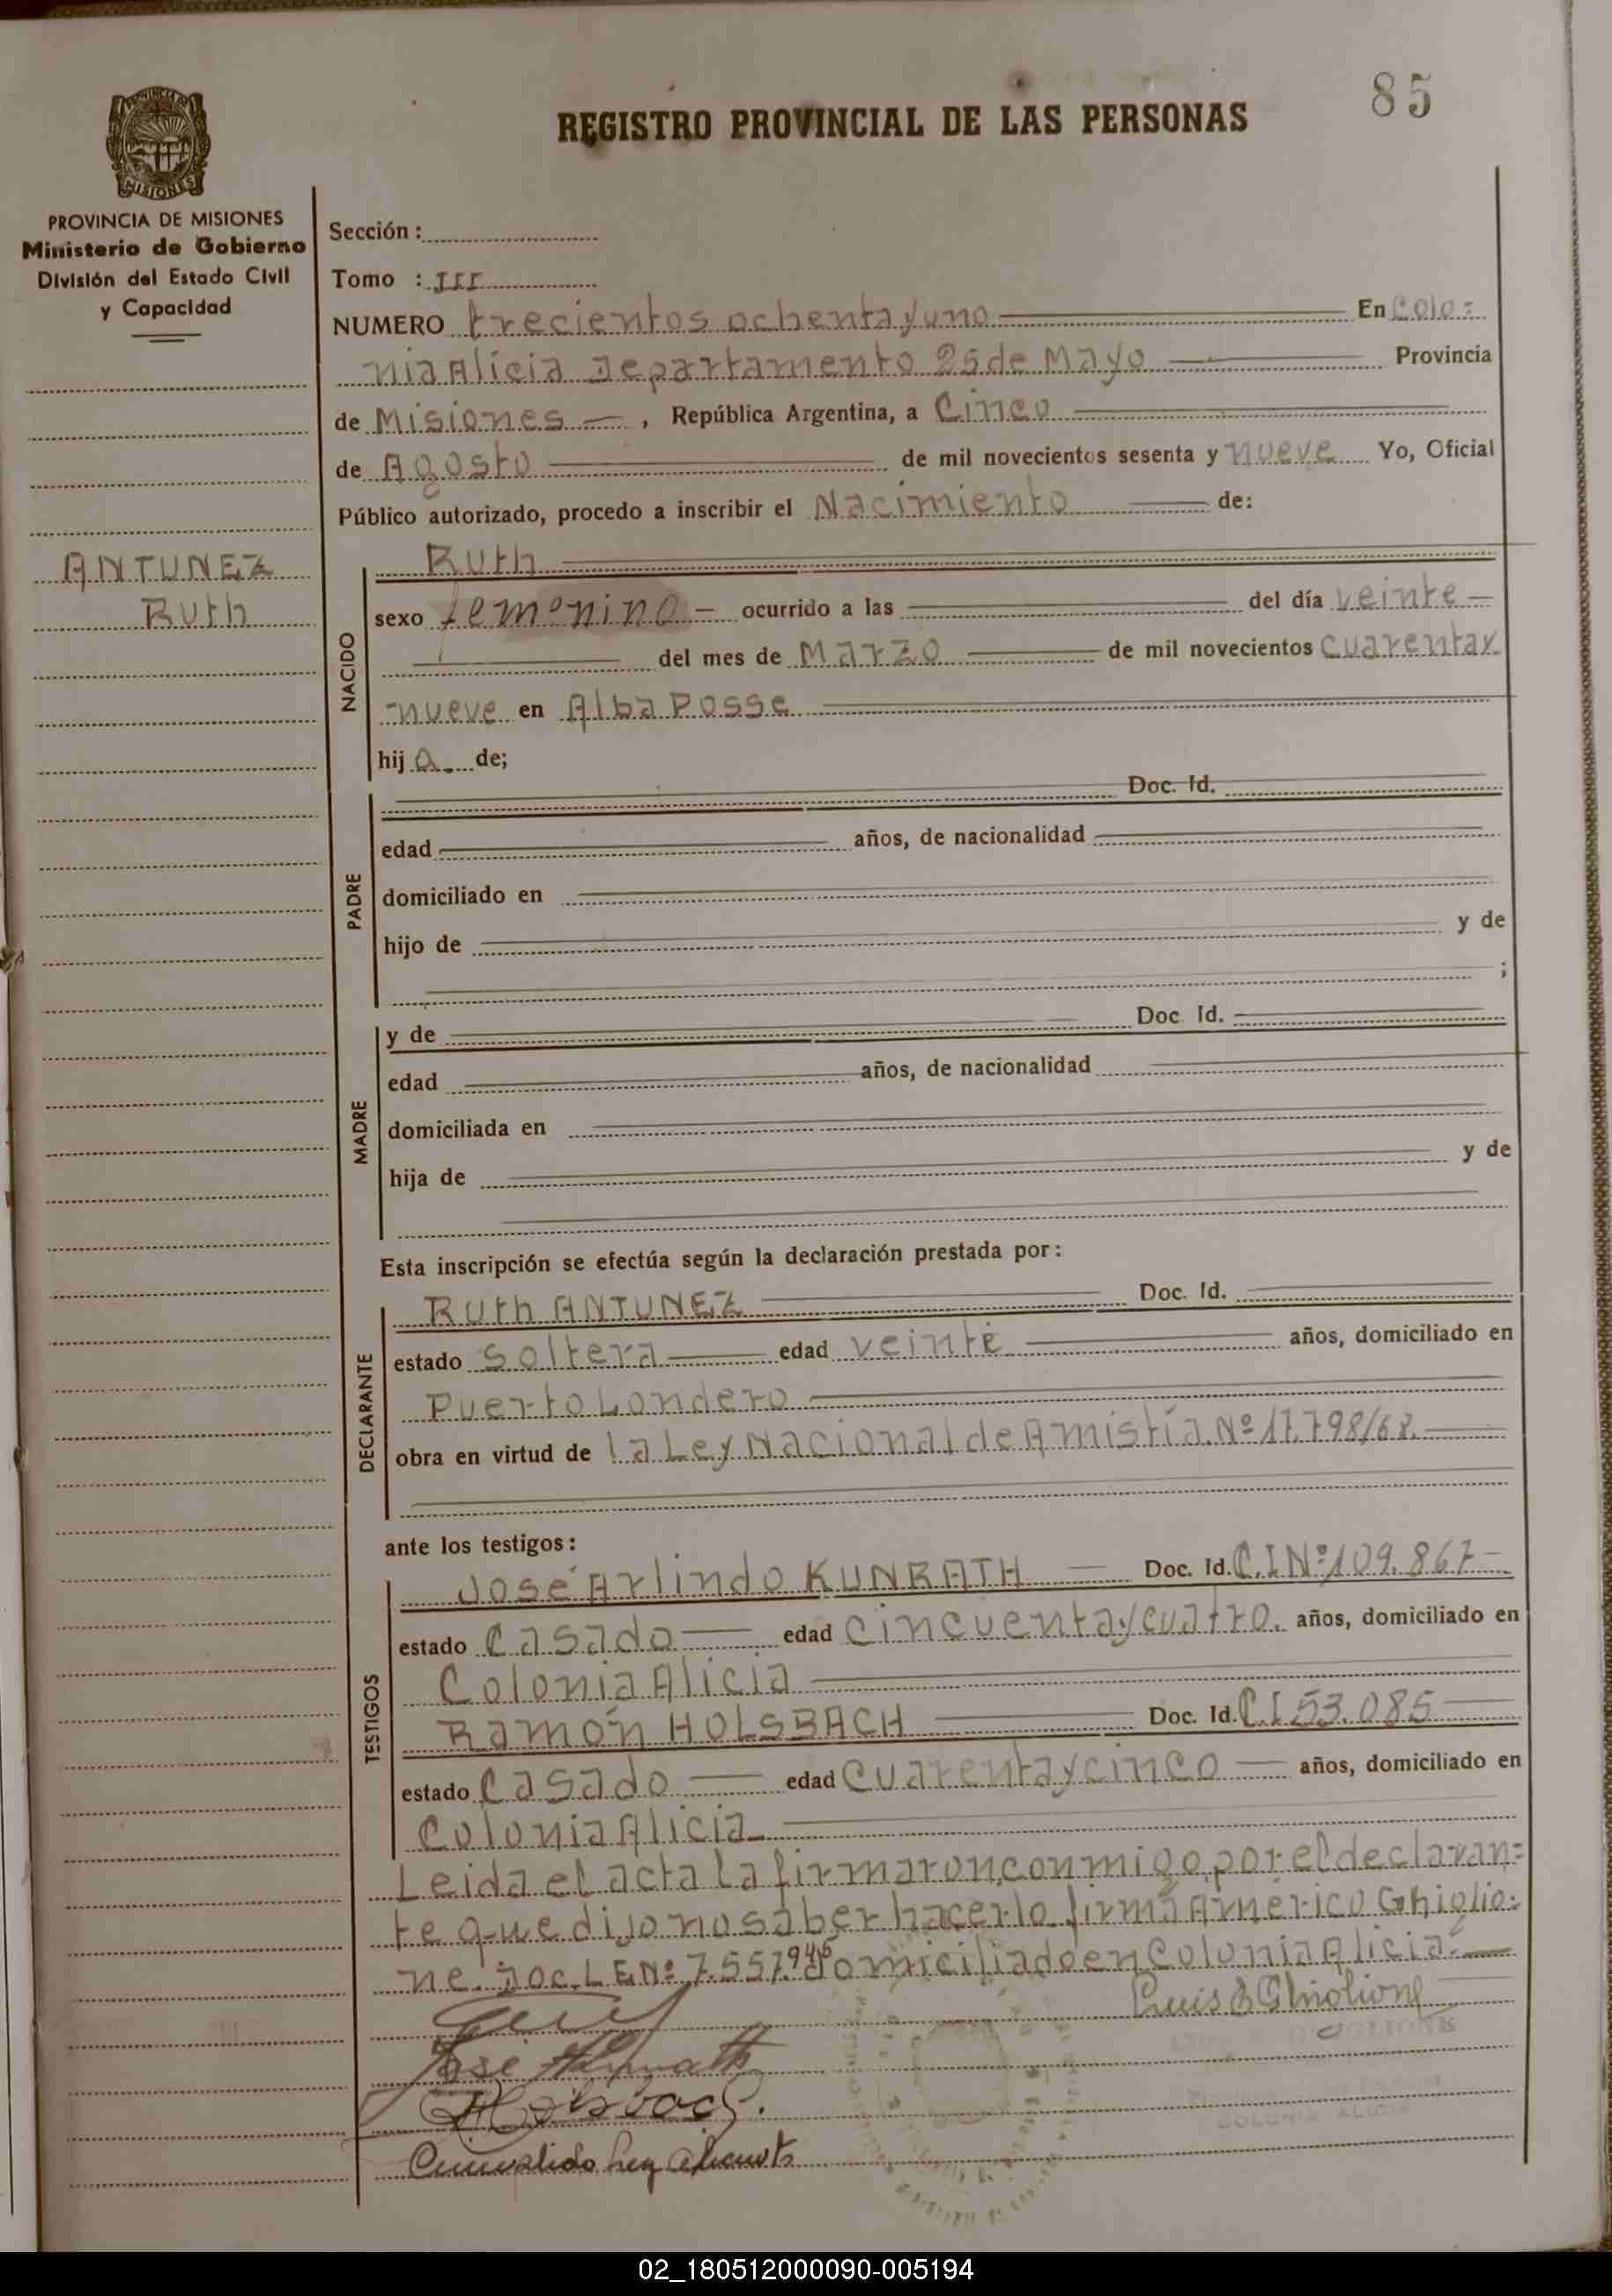 85
REGISTRO PROVINCIAL DE LAS PERSONAS
PROVINCIA DE MISIONES
Ministerio de Gobierno
División del Estado Civil
y Capacidad
ANTUNEZ
Ruth
Sección :
Tomo : III
NUMERO trecientos ochenta y uno En Colo=
nia Alicia Departamento 25 de Mayo Provincia
de Misiones , República Argentina, a Cinco
de Agosto de mil novecientos sesenta y nueve Yo, Oficial
Público autorizado, procedo a inscribir el Nacimiento de:
NACIDO
Ruth
sexo femenino ocurrido a las del día veinte
del mes de Marzo de mil novecientos cuarenta y
nueve en Alba Posse
hij a de;
PADRE
Doc. Id.
edad años, de nacionalidad
domiciliado en
hijo de y de
;
MADRE
y de Doc. Id.
edad años, de nacionalidad
domiciliada en
hija de y de
Esta inscripción se efectúa según la declaración prestada por:
DECLARANTE
Ruth ANTUNEZ Doc. Id.
estado soltera edad veinte años, domiciliado en
Puerto Londero
obra en virtud de la Ley Nacional de Amistía Nº 17.798/68.
ante los testigos:
TESTIGOS
José Arlindo KUNRATH Doc. Id. C.I Nº 109.867
estado Casado edad cincuenta y cuatro. años, domiciliado en
Colonia Alicia
Ramón HOLSBACH Doc. Id. C.I 53.085
estado Casado edad cuarenta y cinco años, domiciliado en
Colonia Alicia
Leida el acta la firmaron conmigo, por el declaran=
te que dijo no saber hacerlo firma Américo Ghiglio=
ne. Doc. L E Nº 7.557.946 domiciliado en Colonia Alicia.
Luis E Ghiglione
José Kunrath
COLONIA ALICIA
02_180512000090-005194